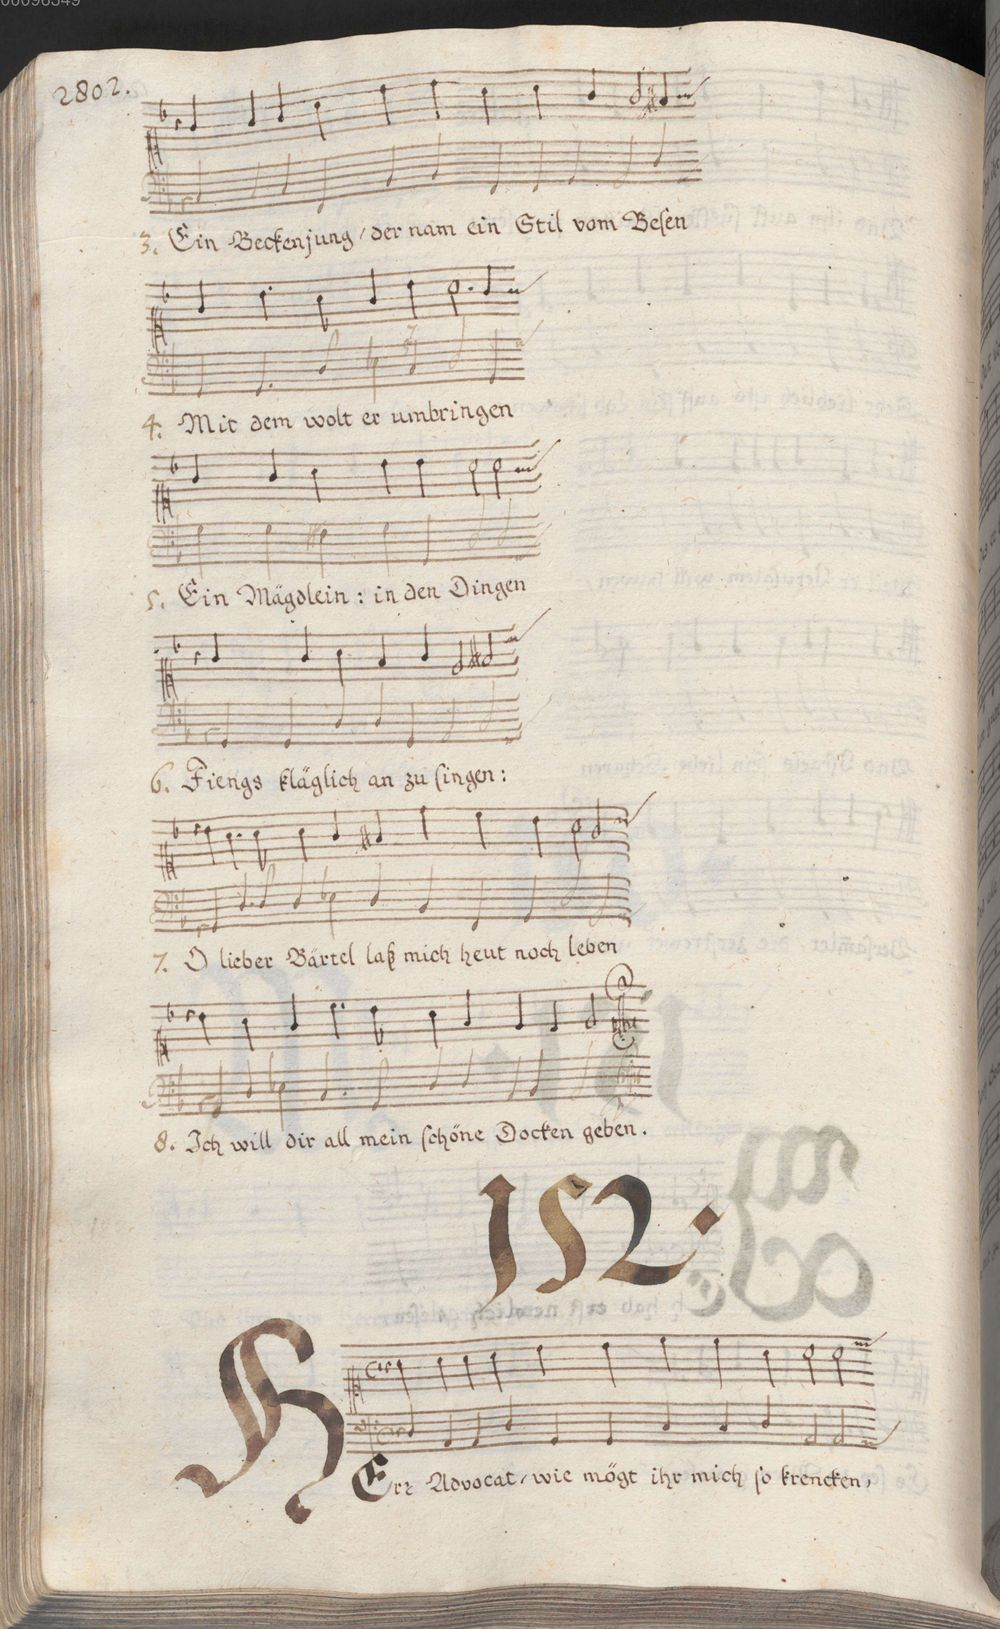 2802.
3. Ein Beckenjung / der nam ein Stil vom Besen
4. Mit dem wolt er umbringen
5. Ein Mägdlein : in den Dingen
6. Fiengs kläglich an zu singen :
7. O lieber Bärtel laß mich heut noch leben
8. Ich will dir all mein schöne Docken geben.
152.
HErr Advocat / wie mögt ihr mich so krencken,